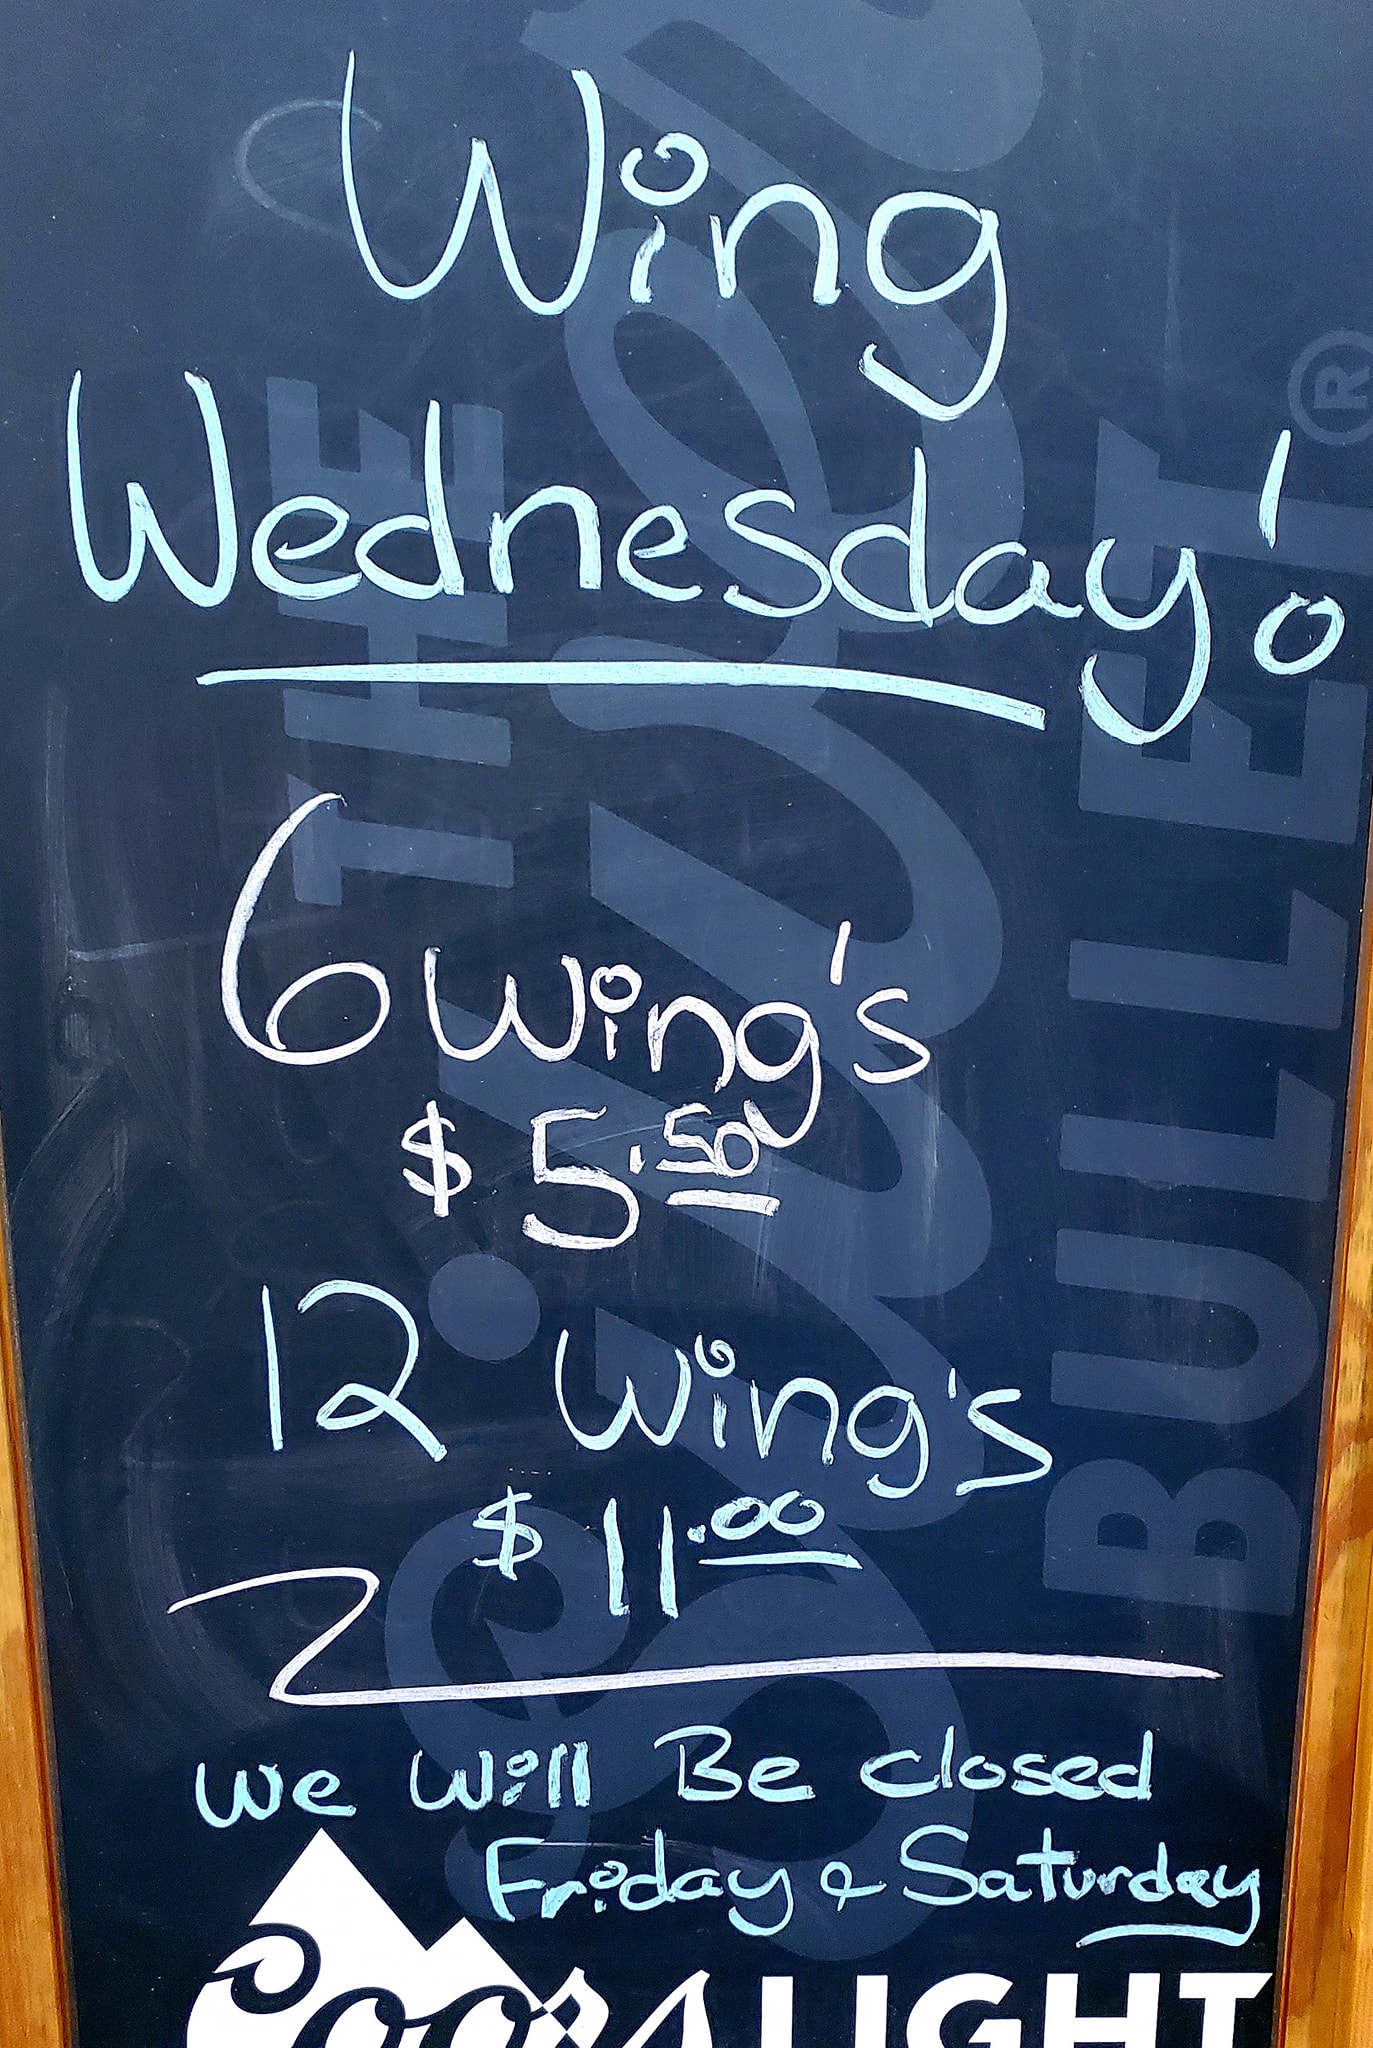 Wing
Wednesday!
6 Wing's
$5.50
12 Wing's
$11.00
We Will Be closed
Friday & Saturday
THE
Silver
BULLET®
Coors LIGHT